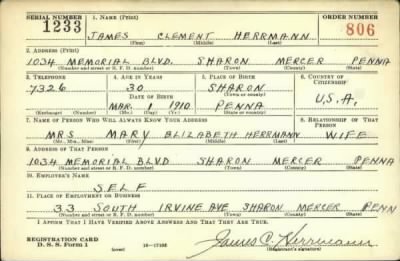 SERIAL NUMBER 1. NAME (Print) ORDER NUMBER
1233 JAMES CLEMENT HERRMANN 806
(First) (Middle) (Last)
2. ADDRESS (Print)
1034 MEMORIAL BLVD. SHARON MERCER PENNA
(Number and street or R. F. D. number) (Town) (County) (State)
3. TELEPHONE 4. AGE IN YEARS 5. PLACE OF BIRTH 6. COUNTRY OF CITIZENSHIP
7326 30 SHARON
(Town or county)
DATE OF BIRTH
MAR. 1 1910 PENNA U.S.A.
(Exchange) (Number) (Mo.) (Day) (Yr.) (State or country)
7. NAME OF PERSON WHO WILL ALWAYS KNOW YOUR ADDRESS 8. RELATIONSHIP OF THAT PERSON
MRS MARY ELIZABETH HERRMANN WIFE
(Mr., Mrs., Miss) (First) (Middle) (Last)
9. ADDRESS OF THAT PERSON
1034 MEMORIAL BLVD SHARON MERCER PENNA
(Number and street or R. F. D. number) (Town) (County) (State)
10. EMPLOYER'S NAME
SELF
11. PLACE OF EMPLOYMENT OR BUSINESS
33 SOUTH IRVINE AVE SHARON MERCER PENN
(Number and street or R. F. D. number) (Town) (County) (State)
I AFFIRM THAT I HAVE VERIFIED ABOVE ANSWERS AND THAT THEY ARE TRUE.
REGISTRATION CARD James C. Herrmann
D. S. S. Form 1 (over) 16—17105 (Registrant's signature)